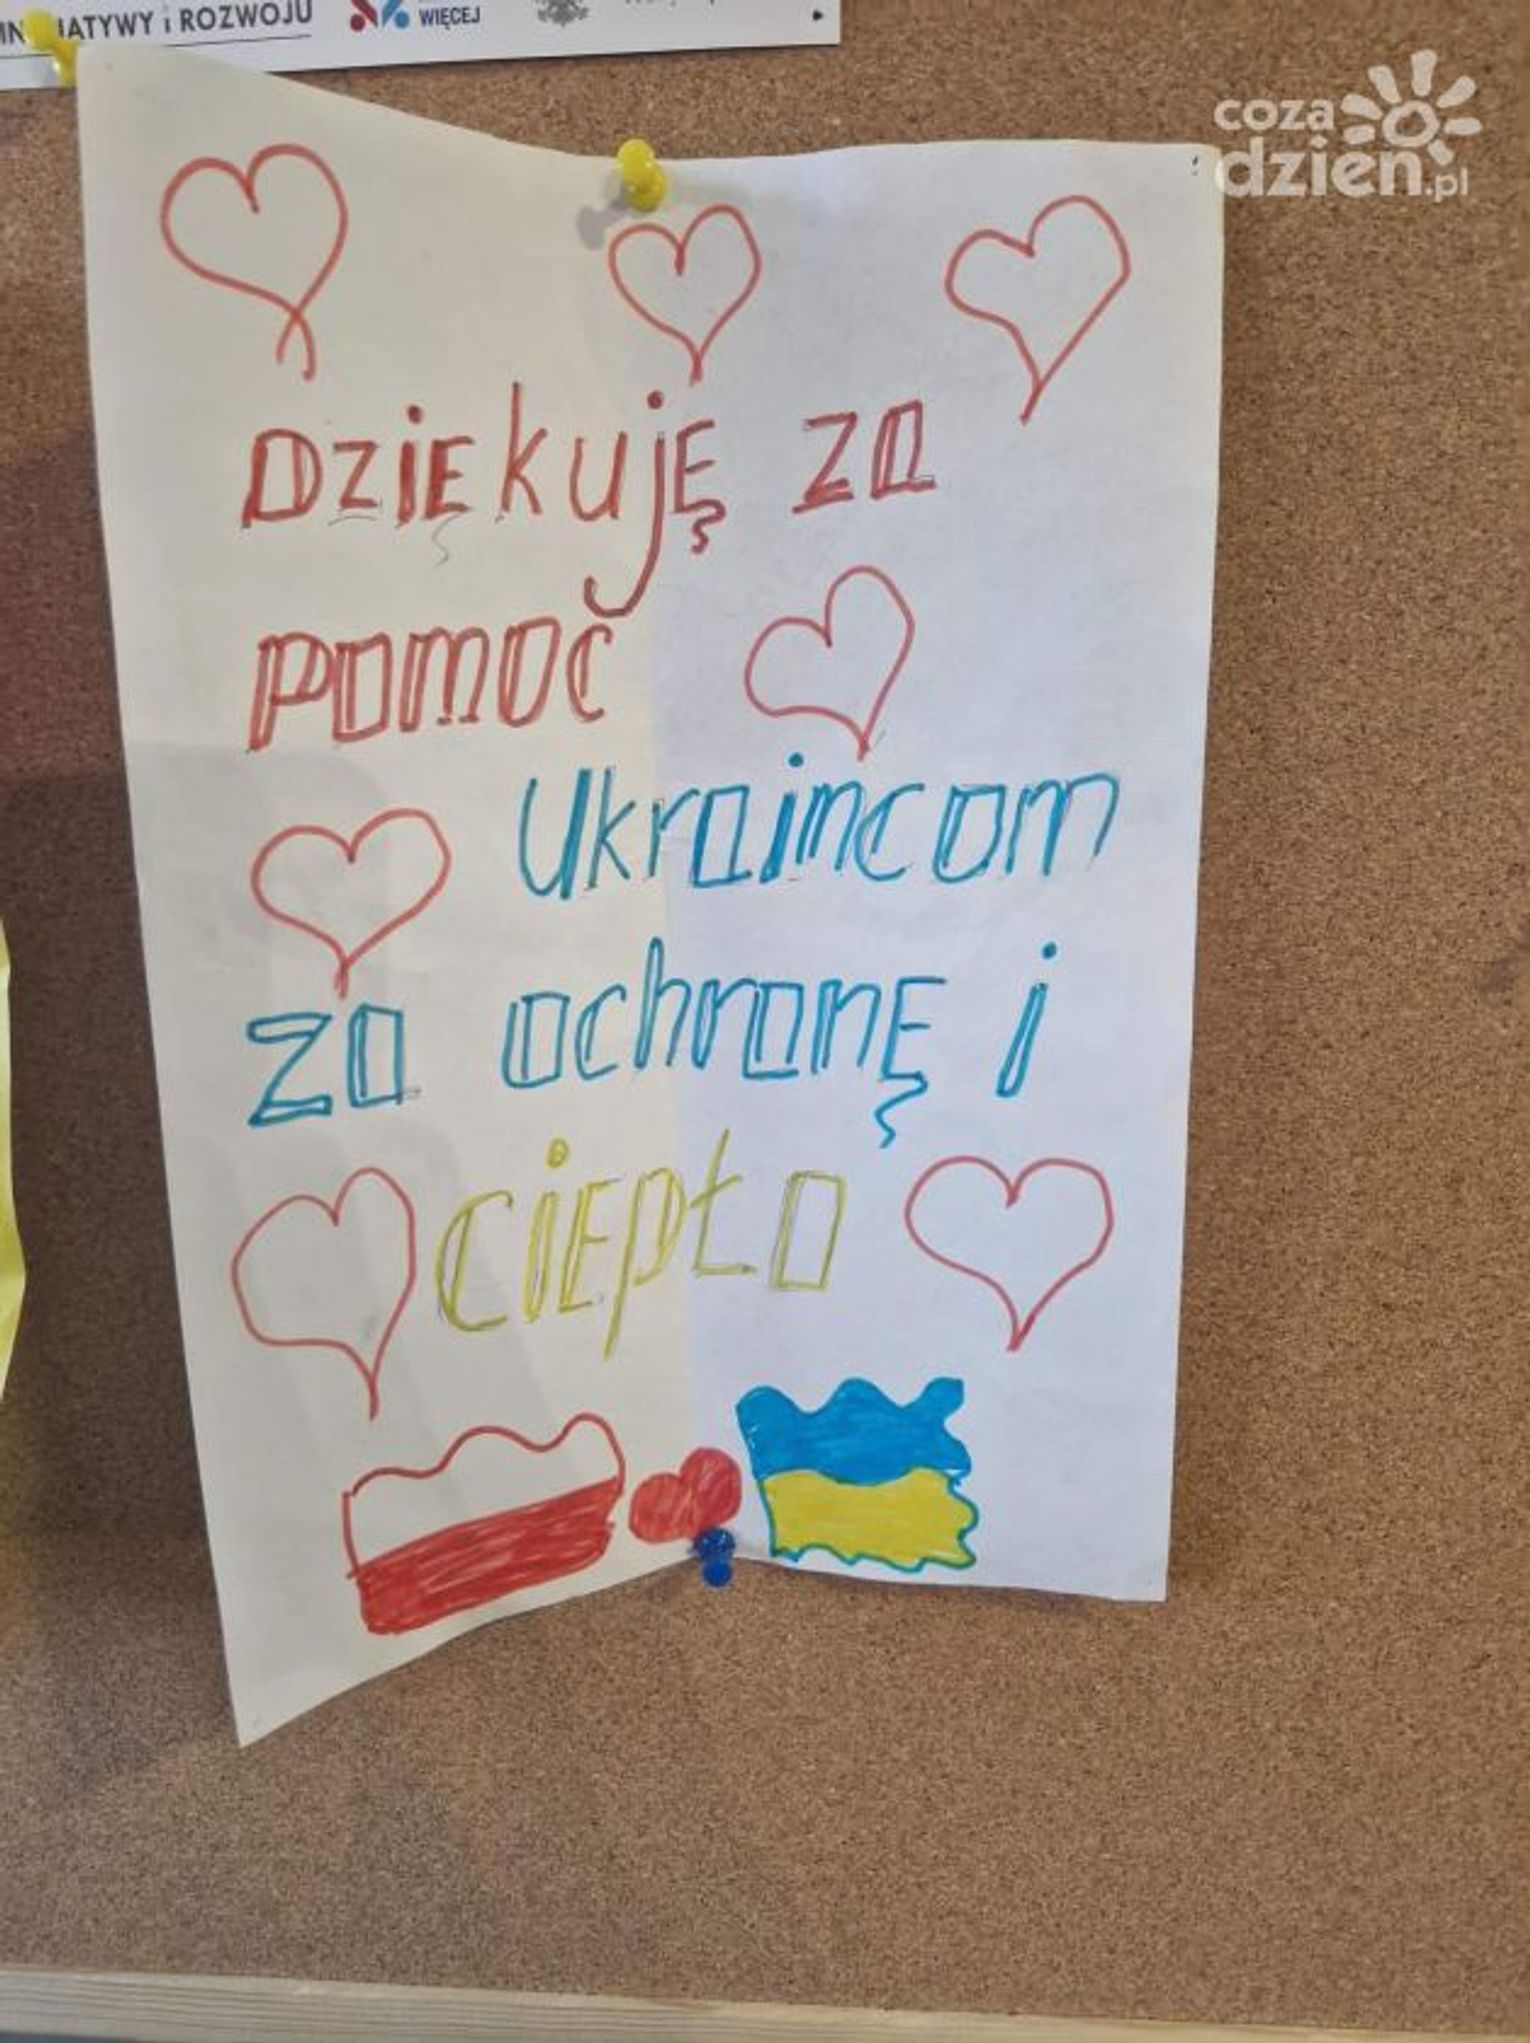 JATYWY i ROZWOJU
WIĘCEJ
coza
dzien.pl
DZIĘKUJĘ za
pomoc
Ukraincom
za ochronę i
CIEPŁO